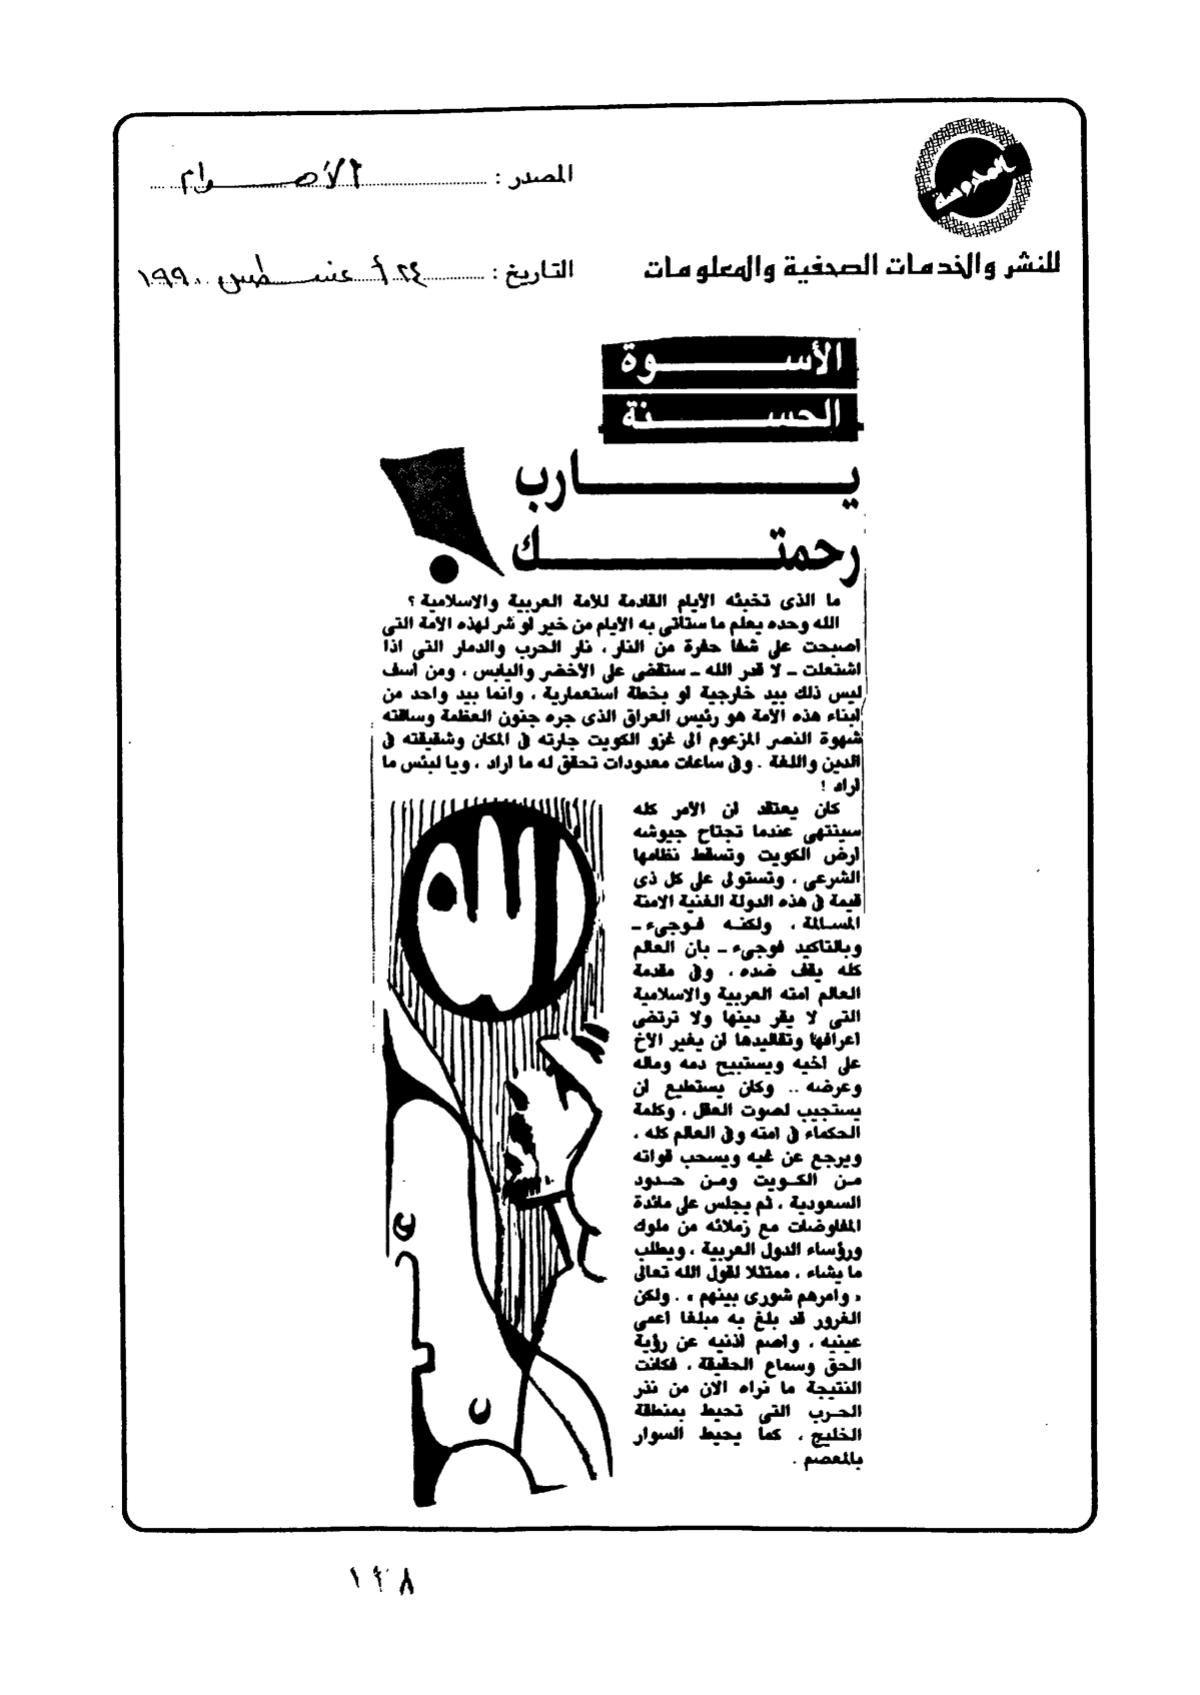 المحروسة
للنشر والخدمات الصحفية والمعلومات
المصدر : الأهرام
التاريخ : ٢٤ أغسطس ١٩٩٠
الأسوة
الحسنة
يارب
رحمتك
ما الذى تخبئه الأيام القادمة للأمة العربية والاسلامية ؟
الله وحده يعلم ما ستاتى به الأيام من خير او شر لهذه الأمة التى
اصبحت على شفا حفرة من النار ، نار الحرب والدمار التى اذا
اشتعلت ـ لا قدر الله ـ ستقضى على الأخضر واليابس ، ومن اسف
ليس ذلك بيد خارجية او بخطة استعمارية ، وانما بيد واحد من
ابناء هذه الأمة هو رئيس العراق الذى جره جنون العظمة وساقته
شهوة النصر المزعوم الى غزو الكويت جارته فى المكان وشقيقته فى
الدين واللغة . وفى ساعات معدودات تحقق له ما اراد ، ويا لبئس ما
اراد !
كان يعتقد ان الأمر كله
سينتهى عندما تجتاح جيوشه
ارض الكويت وتسقط نظامها
الشرعى ، وتستولى على كل ذى
قيمة فى هذه الدولة الغنية الامنة
المسالمة ، ولكنه فوجىء ـ
وبالتاكيد فوجىء ـ بان العالم
كله يقف ضده ، وفى مقدمة
العالم امته العربية والاسلامية
التى لا يقر دينها ولا ترتضى
اعرافها وتقاليدها ان يغير الأخ
على اخيه ويستبيح دمه وماله
وعرضه .. وكان يستطيع ان
يستجيب لصوت العقل ، وكلمة
الحكماء فى امته وفى العالم كله ،
ويرجع عن غيه ويسحب قواته
من الكويت ومن حدود
السعودية ، ثم يجلس على مائدة
المفاوضات مع زملائه من ملوك
ورؤساء الدول العربية ، ويطلب
ما يشاء ، ممتثلا لقول الله تعالى
« وامرهم شورى بينهم » . ولكن
الغرور قد بلغ به مبلغا اعمى
عينيه ، واصم اذنيه عن رؤية
الحق وسماع الحقيقة ، فكانت
النتيجة ما نراه الان من نذر
الحرب التى تحيط بمنطقة
الخليج ، كما يحيط السوار
بالمعصم .